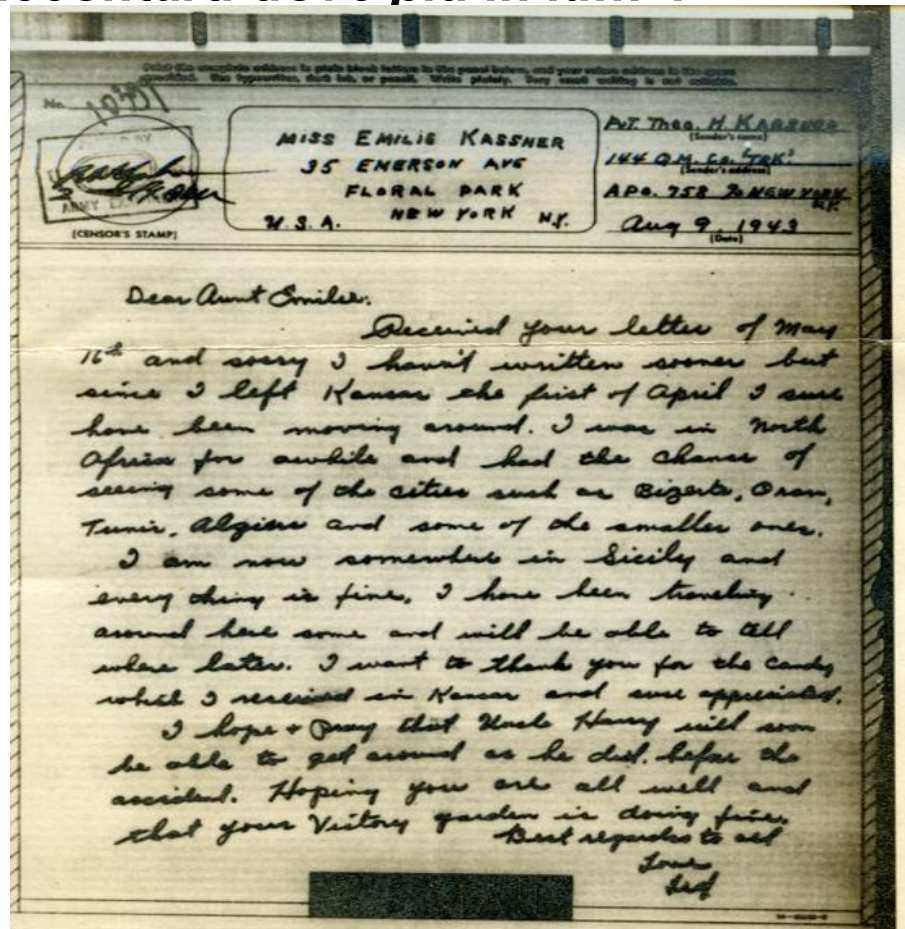 Print the complete address in plain block letters in the panel below, and your return address in the space
provided. Use typewriter, dark ink, or pencil. Write plainly. Very small writing is not suitable.
No.
[CENSOR'S STAMP]
MISS EMILIE KASSNER
35 EMERSON AVE
FLORAL PARK
NEW YORK N.Y.
U.S.A.
PVT. Theo. H. KASSNER
(Sender's name)
144 Q.M. Co. "TRK"
(Sender's address)
APO. 758 % NEW YORK
N.Y.
Aug 9, 1943
(Date)
Dear Aunt Emilie.
Received your letter of May
16th and sorry I havn't written sooner but
since I left Kansas the first of April I sure
have been moving around. I was in North
Africa for awhile and had the chance of
seeing some of the cities such as Bizerte, Oran,
Tunis, Algiers and some of the smaller ones.
I am now somewhere in Sicily and
every thing is fine, I have been traveling
around here some and will be able to tell
where later. I want to thank you for the candy
which I received in Kansas and sure appreciated.
I hope + pray that Uncle Harry will soon
be able to get around as he did before the
accident. Hoping you are all well and
that your Victory garden is doing fine.
Best regards to all
Love
Ted